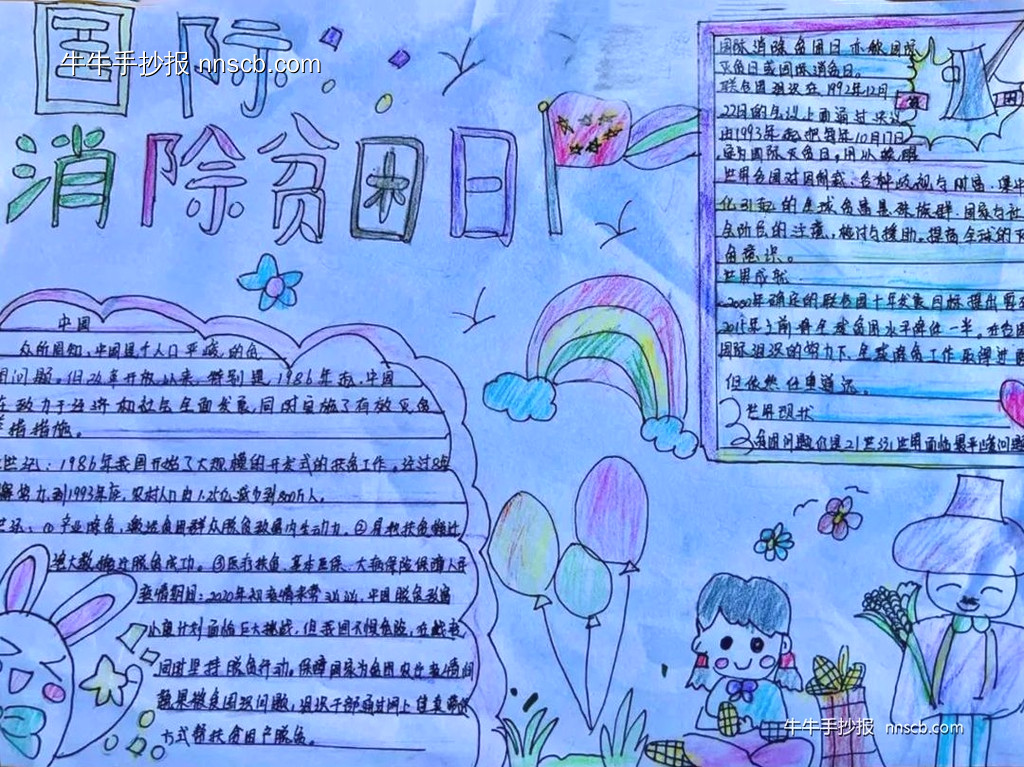 国际
牛牛手抄报 nnscb.com
消除贫困日
国际消除贫困日亦称国际
灭贫日或国际消贫日。
联合国组织在1992年12月
22日的会议上面通过决议
由1993年起把每年10月17日
定为国际灭贫日。用以唤醒
世界各国对因制裁、各种歧视与财富集中
化引起的全球贫富悬殊族群、国家与社
会阶层的注意、检讨与援助。提高全球的灭
贫意识。
世界成就
2000年确定的联合国千年发展目标提出要
2015年之前将全球贫困水平降低一半。在各国
国际组织的努力下,全球减贫工作取得进
但依然任重道远。
世界现状
贫困问题仍是21世纪世界面临最严峻问题
中国
众所周知,中国是个人口
困问题。但改革开放以来,特别是,1986年起,中国
在致力于经济和社会全面发展,同时实施了有效灭贫
措施。
:1986年我国开始了大规模的开发式的扶贫工作。经过8年
努力,到1993年底,农村人口由1.25亿减少到800万人。
:①产业脱贫,激活贫困群众脱贫致富内生动力。②易地扶贫搬迁
绝大数搬迁脱贫成功。③医疗扶贫,基本医保、大病保险保障人年
疫情期间:2020年初疫情来势汹汹,中国脱贫致富
小康计划面临巨大挑战,但我国不惧危险,在战
同时坚持脱贫行动。保障国家为贫困农
蔬果滞贫困项问题,组织干部通过网上
方式帮扶贫困户脱贫。
牛牛手抄报 nnscb.com